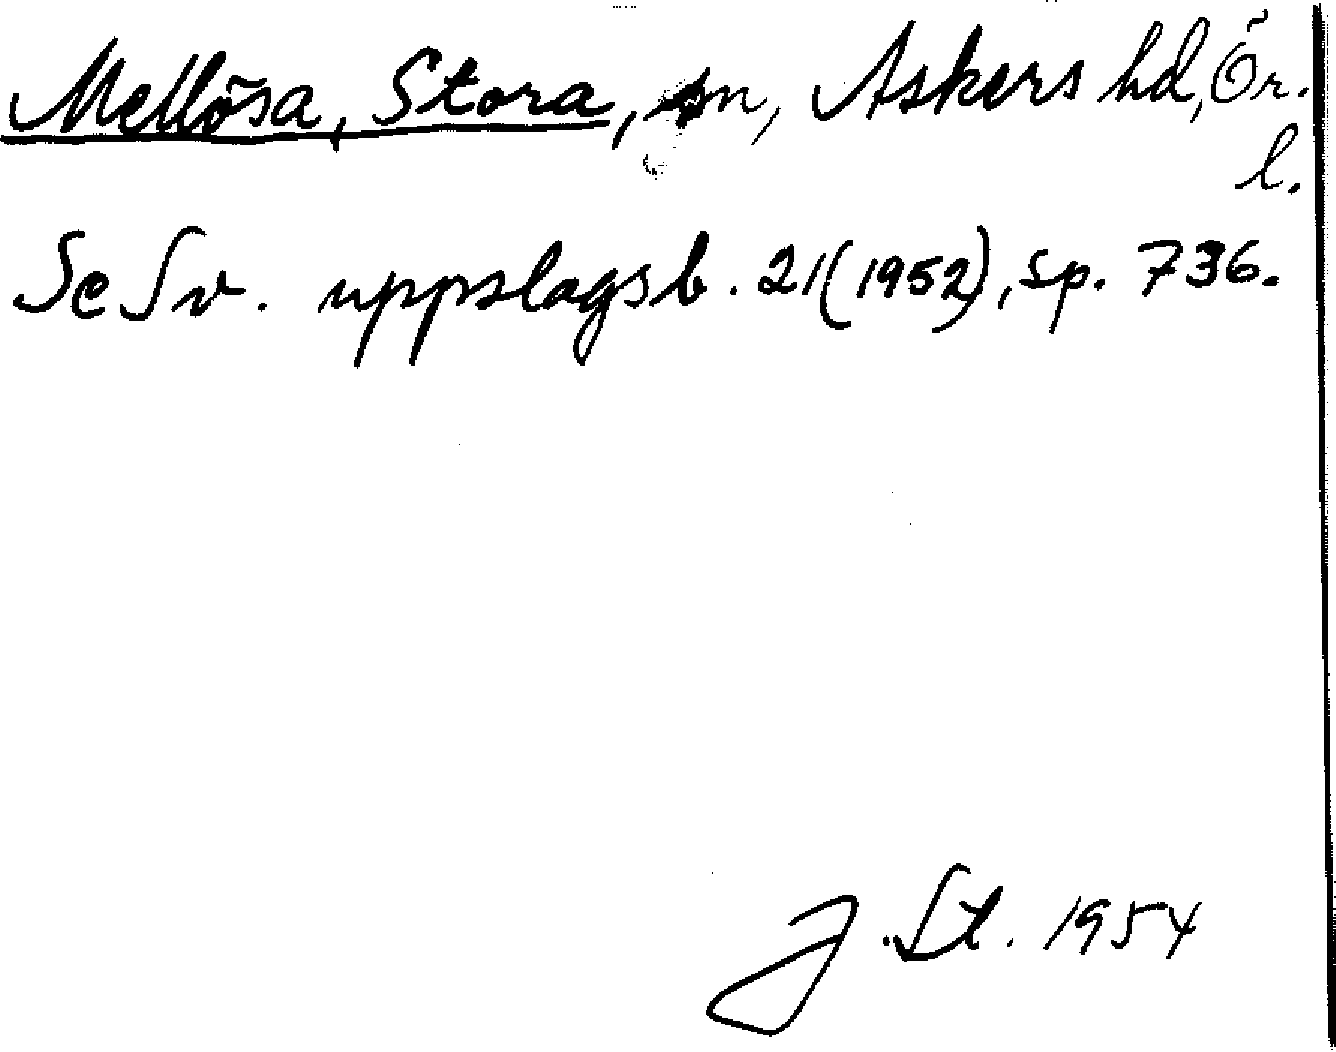 Mellösa, Stora, sn, Askers hd, Ör.
l.
Se Sv. uppslagsb. 21(1952), sp. 736.
J. St. 1954